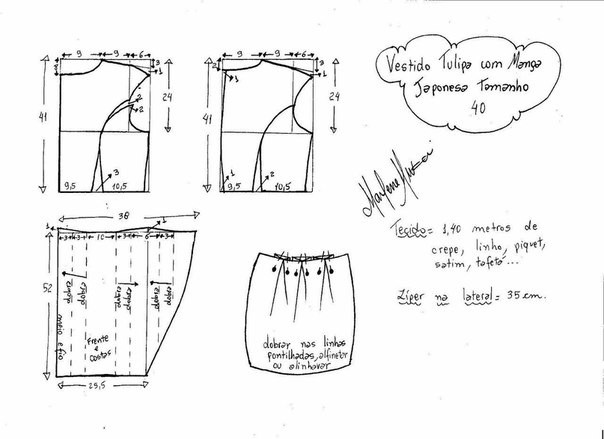 9 9 6
3
1
2
2
2
41
24
3
9,5 10,5
9 9 6
3
2
1
41
24
1
2
9,5 10,5
Vestido Tulipa com Manga
Japonesa Tamanho
40
Marlene Mukai
Tecido = 1,40 metros de
crepe, linho, piquet,
satim, tafetá...
Zíper na lateral = 35 cm.
38
1
3 3 10 3 6
52
dobra dobra dobra dobra dobra dobra
meio e fio
Frente
e
costas
25,5
dobrar nas linhas
pontilhadas, alfinetar
ou alinhavar